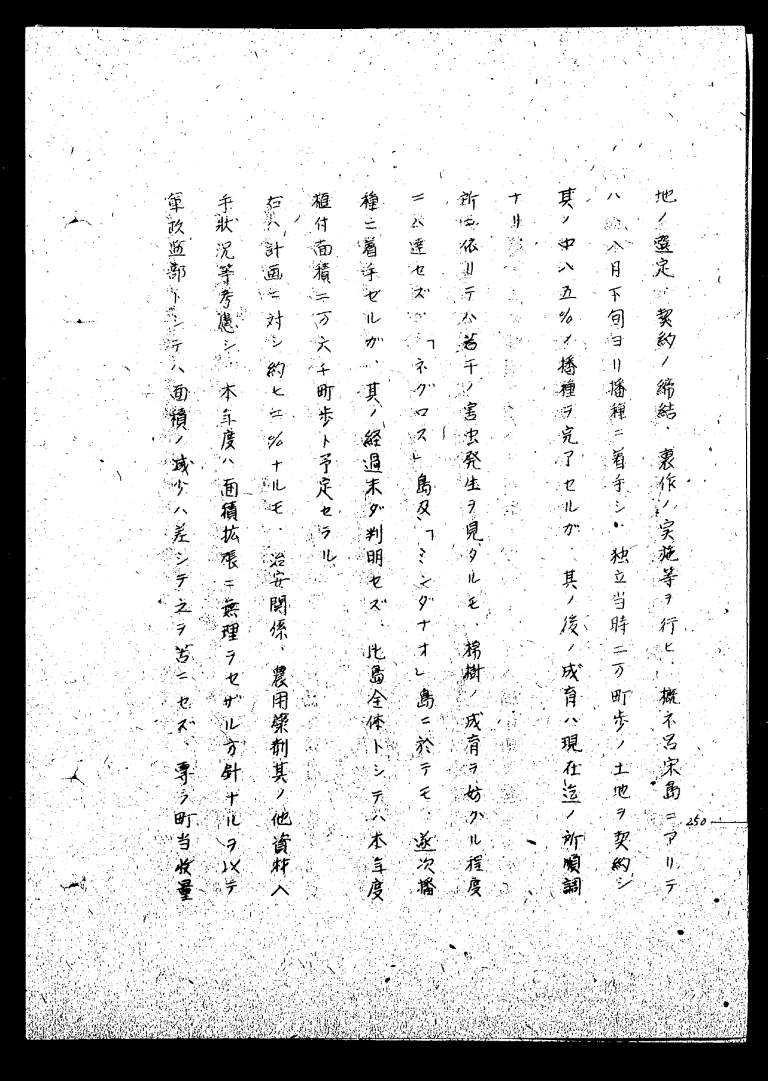 地ノ選定、契約ノ締結、裏作ノ実施等ヲ行ヒ、概ネ呂宋島ニアリテ
ハ八月下旬ヨリ播種ニ着手シ、独立当時二万町歩ノ土地ヲ契約シ
其ノ中八五%ノ播種ヲ完了セルガ、其ノ後ノ成育ハ現在迄ノ所順調
ナリ
所ニ依リテハ若干ノ害虫発生ヲ見タルモ、棉樹ノ成育ヲ妨グル程度
ニハ達セズ、「ネグロス」島及「ミンダナオ」島ニ於テモ、逐次播
種ニ着手セルガ、其ノ経過未ダ判明セズ、比島全体トシテハ本年度
植付面積二万六千町歩ト予定セラル
右ハ計画ニ対シ約七二%ナルモ、治安関係、農用薬剤其ノ他資材入
手状況等考慮シ、本年度ハ面積拡張ニ無理ヲセザル方針ナルヲ以テ
軍政監部トシテハ面積ノ減少ハ差シテ之ヲ苦ニセズ、専ラ町当収量
250